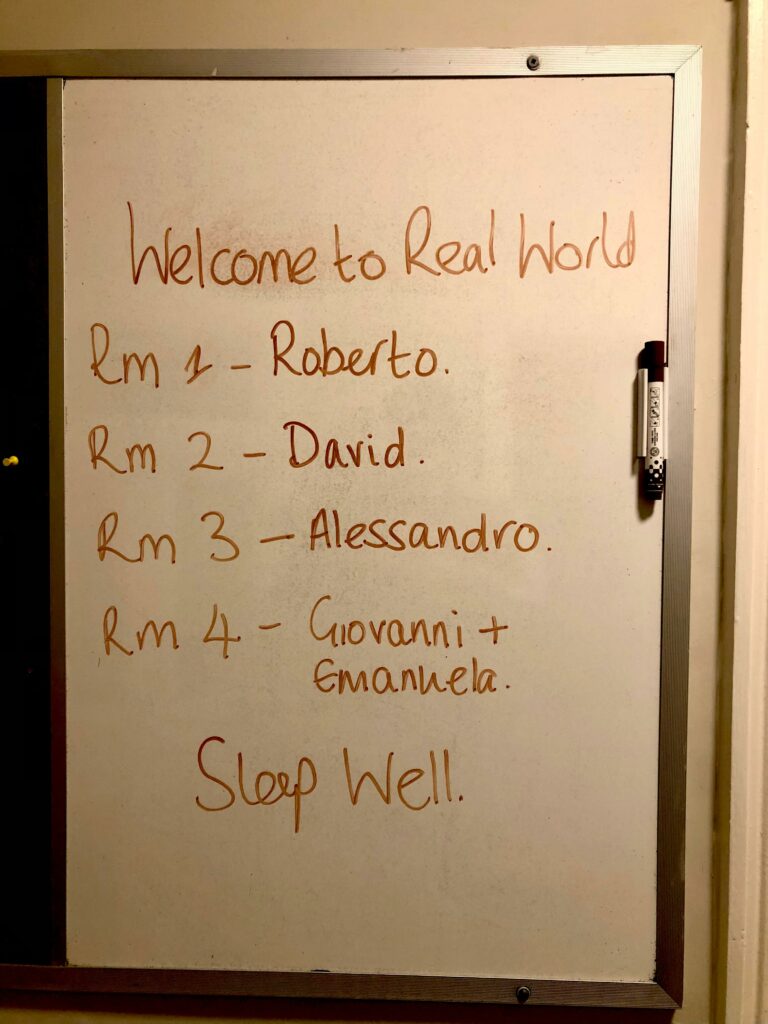 Welcome to Real World
Rm 1 - Roberto.
Rm 2 - David.
Rm 3 - Alessandro.
Rm 4 - Giovanni +
Emanuela.
Sleep Well.